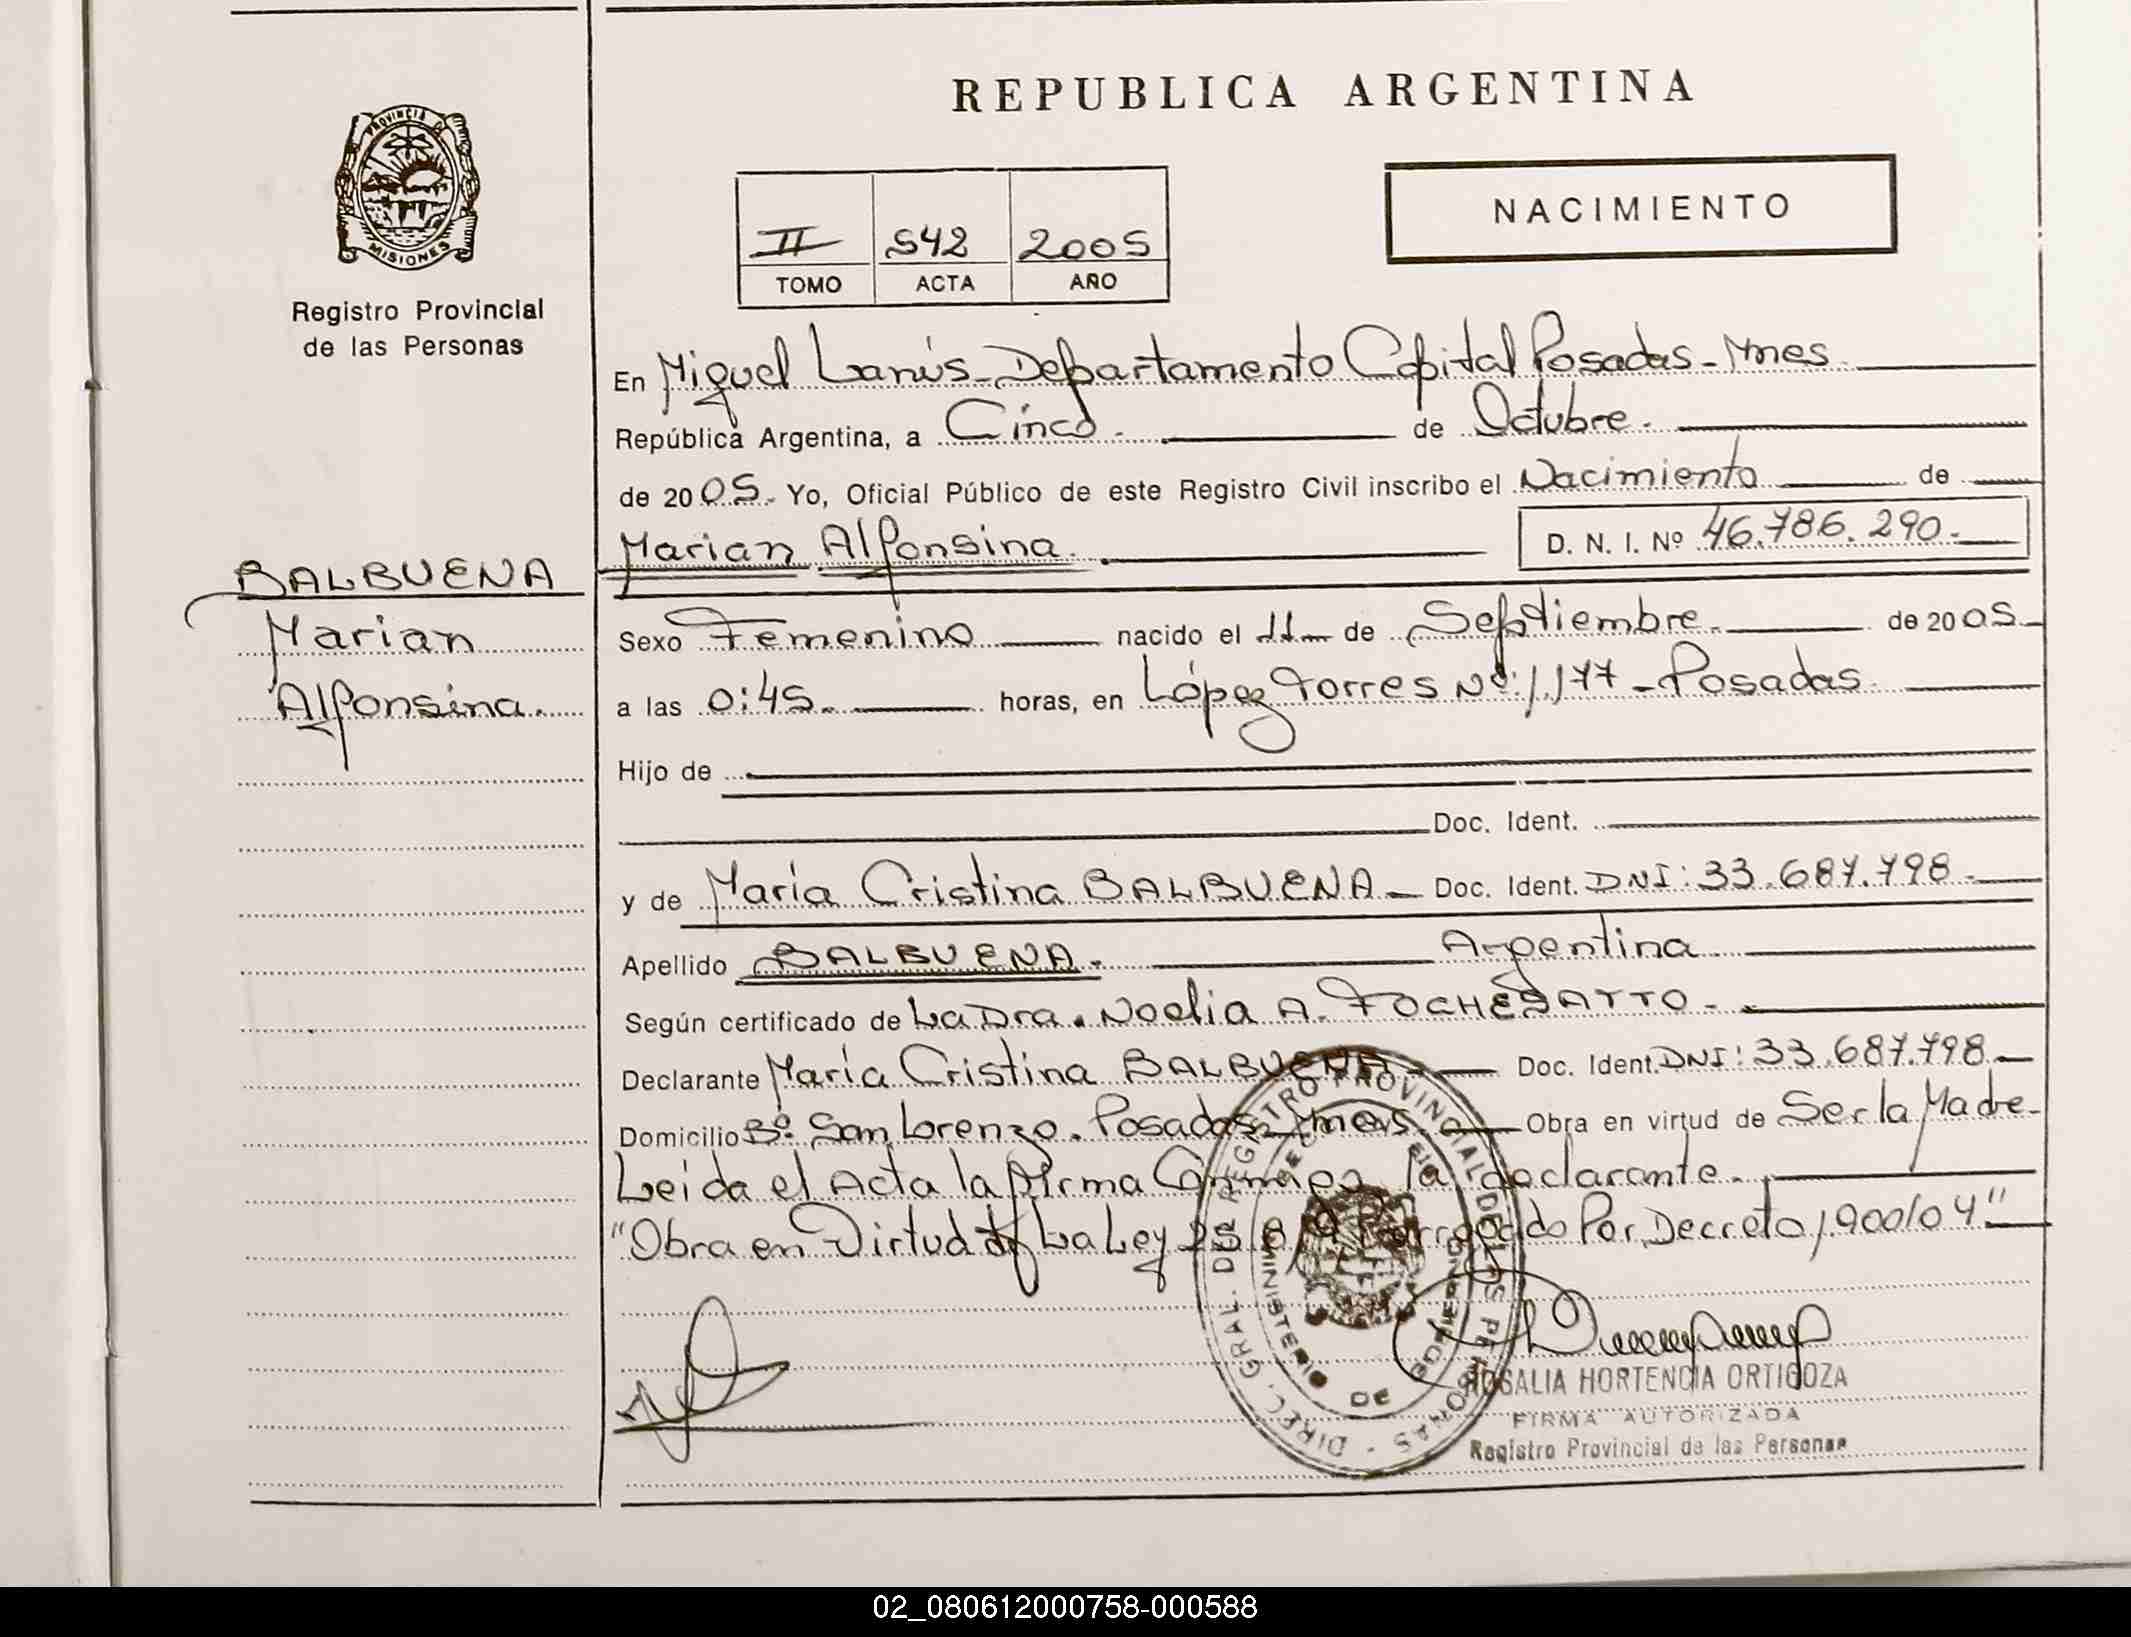 REPUBLICA ARGENTINA
PROVINCIA DE
MISIONES
Registro Provincial
de las Personas
NACIMIENTO
II 542 2005
TOMO ACTA AÑO
En Miguel Lanús - Departamento Capital Posadas - Mnes.
República Argentina, a Cinco. de Octubre.
de 2005. Yo, Oficial Público de este Registro Civil inscribo el Nacimiento de
Marian Alfonsina. D. N. I. Nº 46.786.290.-
BALBUENA
Marian
Alfonsina.
Sexo Femenino nacido el 11 de Septiembre. de 2005
a las 0:45. horas, en López Torres Nº: 1.177 - Posadas.
Hijo de
Doc. Ident.
y de María Cristina BALBUENA - Doc. Ident. DNI: 33.687.798.-
Apellido BALBUENA. Argentina
Según certificado de La Dra. Noelia A. FOCHESATTO.-
Declarante María Cristina BALBUENA - Doc. Ident. DNI: 33.687.798.-
Domicilio Bº San Lorenzo. Posadas Mnes. Obra en virtud de Ser la Madre.
Leida el Acta la firma Conmigo la declarante.
"Obra en Virtud de La Ley Por Decreto 1.900/04"
DIREC. GRAL. DE REGISTRO PROVINCIAL DE LAS PERSONAS
MINISTERIO DE GOBIERNO
ROSALIA HORTENCIA ORTIGOZA
FIRMA AUTORIZADA
Registro Provincial de las Personas
02_080612000758-000588